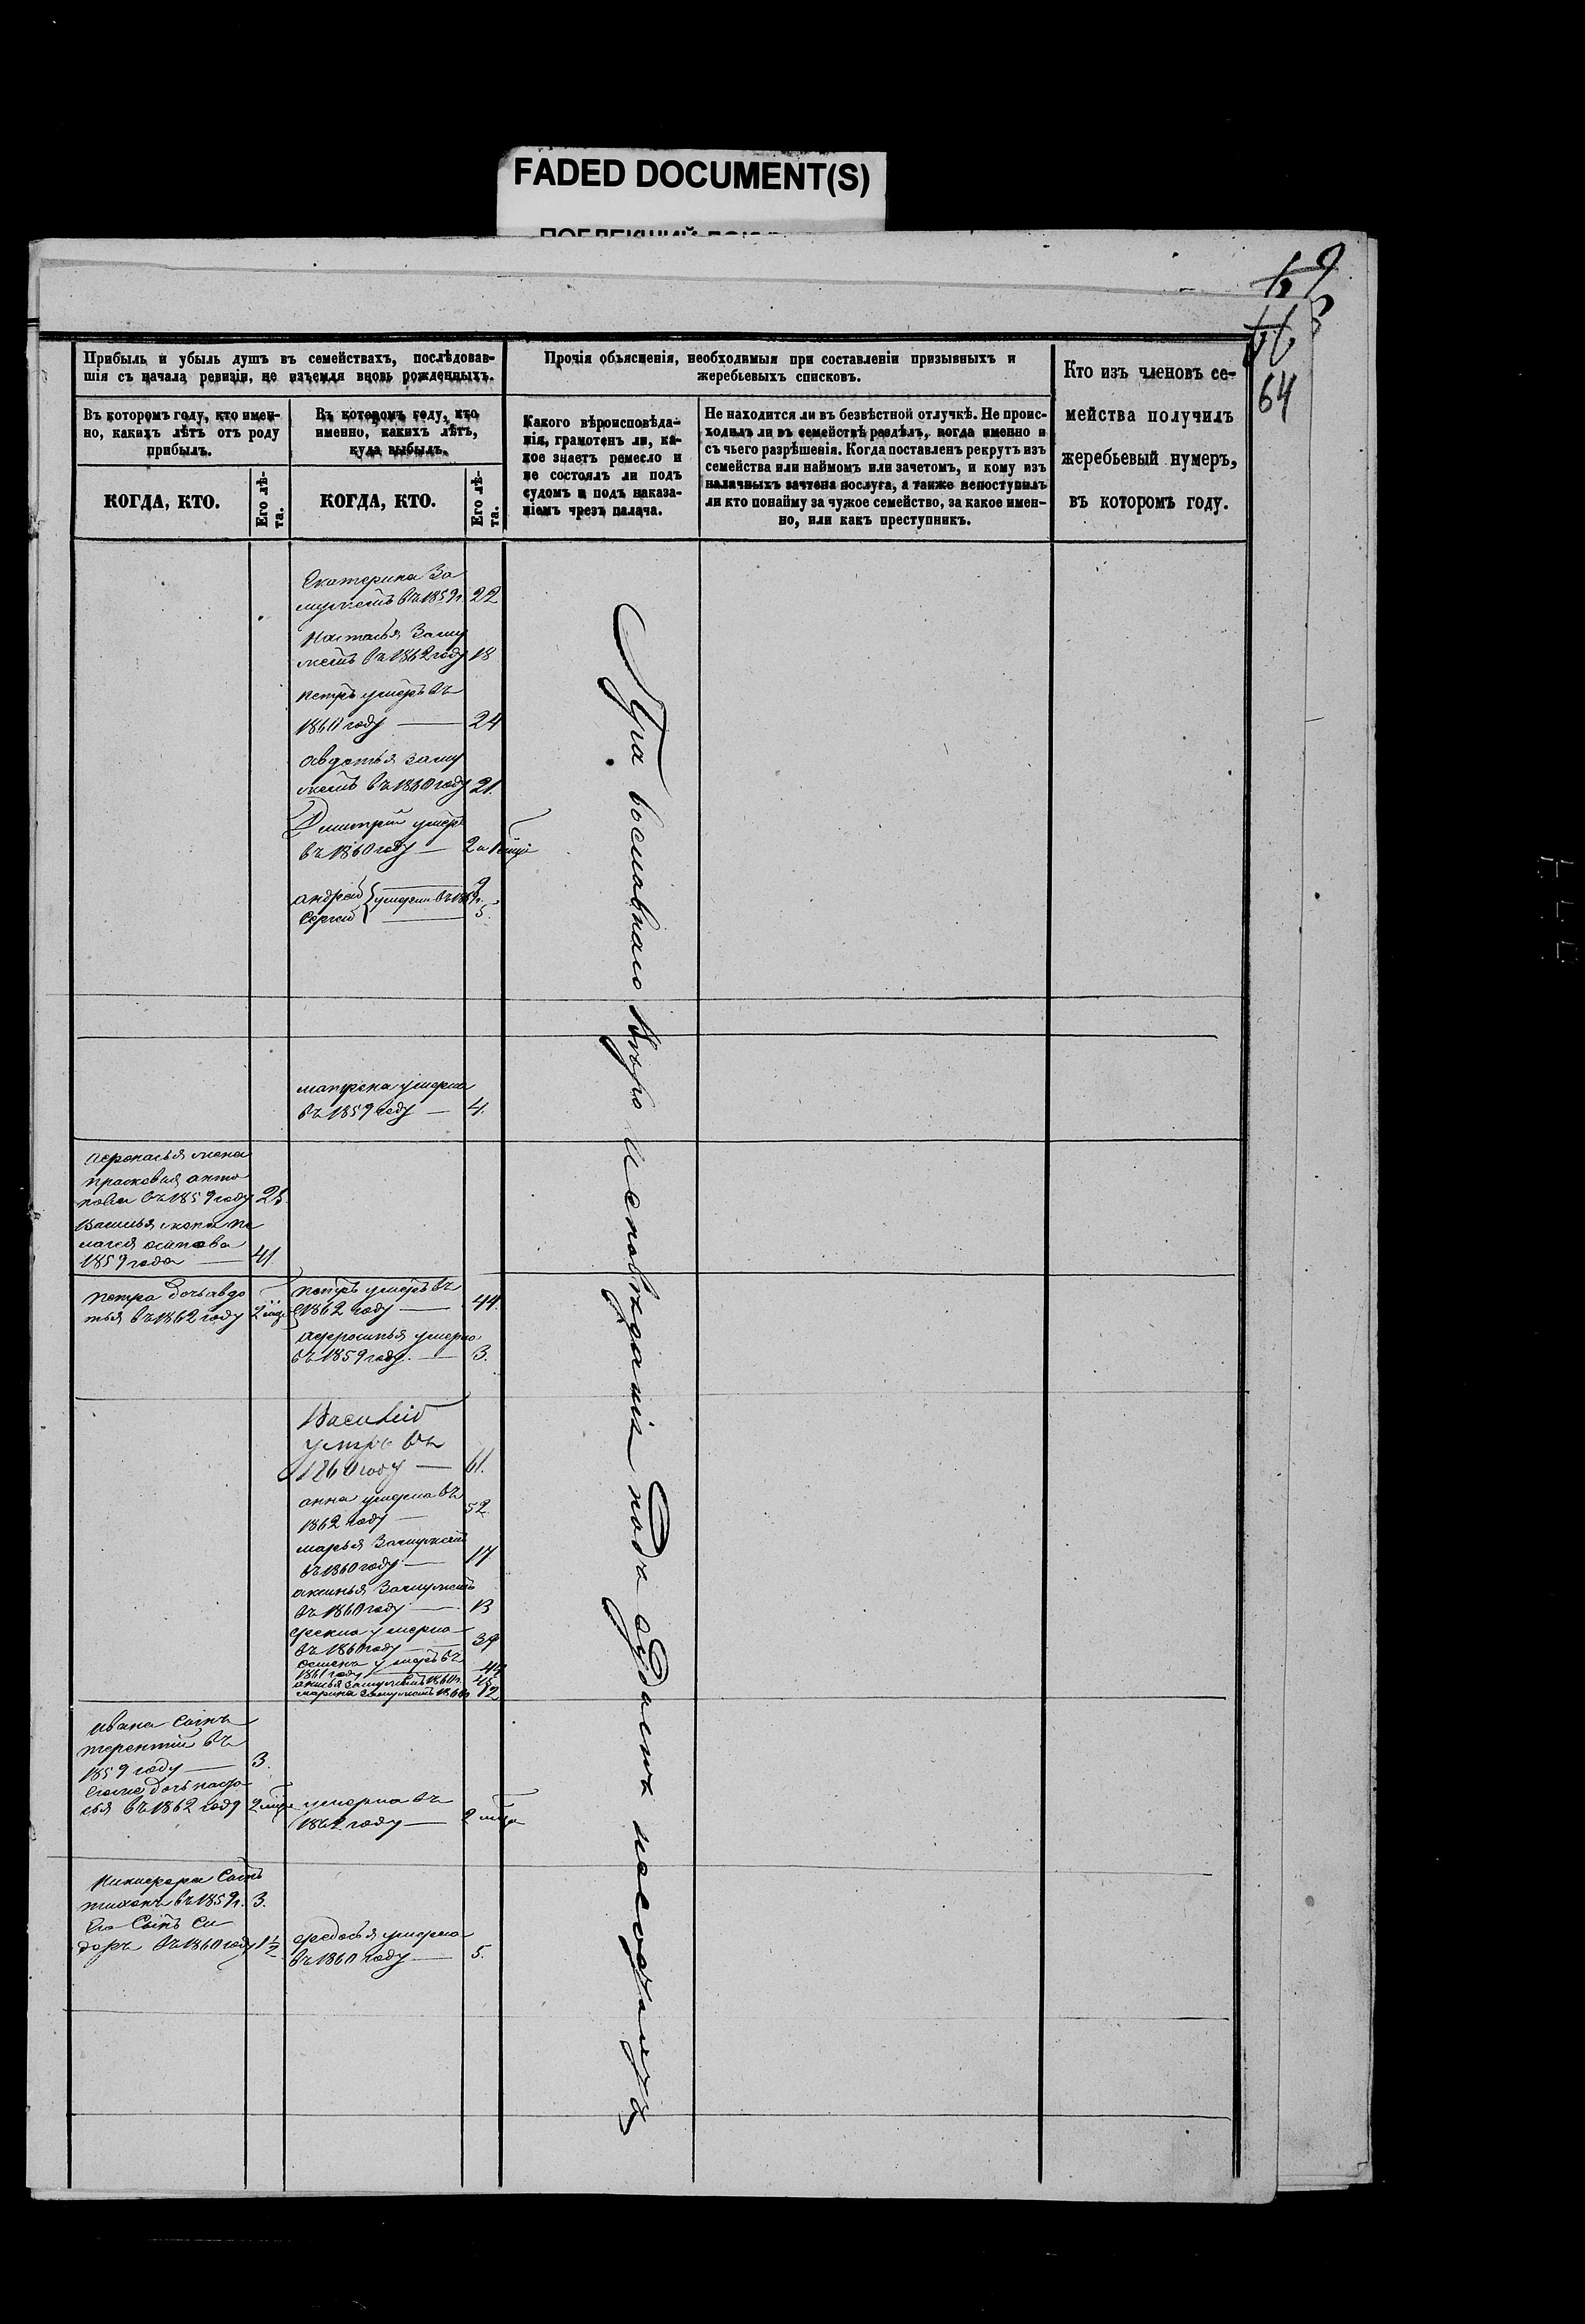 FADED DOCUMENT(S)
64
Прибыль и убыль душъ въ семействахъ, послѣдовав-
шія съ начала ревизіи, не изъемля вновь рожденныхъ.
Въ которомъ году, кто имен-
но, какихъ лѣтъ отъ роду
прибылъ.
КОГДА, КТО.
Его лѣ-
та.
Въ которомъ году, кто
именно, какихъ лѣтъ,
куда выбылъ.
КОГДА, КТО.
Его лѣ-
та.
Прочія объясненія, необходимыя при составленіи призывныхъ и
жеребьевыхъ списковъ.
Какого вѣроисповѣда-
нія, грамотенъ ли, ка-
кое знаетъ ремесло и
не состоялъ ли подъ
судомъ и подъ наказа-
ніемъ чрезъ палача.
Не находится ли въ безвѣстной отлучкѣ. Не проис-
ходилъ ли въ семействѣ раздѣлъ, когда именно и
съ чьего разрѣшенія. Когда поставленъ рекрутъ изъ
семейства или наймомъ или зачетомъ, и кому изъ
наличныхъ зачтена послуга, а также непоступилъ
ли кто понайму за чужое семейство, за какое имен-
но, или какъ преступникъ.
Кто изъ членовъ се-
мейства получилъ
жеребьевый нумеръ,
въ которомъ году.
Екатерина За
мужемъ въ 1859 г. 22
Настасья Заму
жемъ въ 1862 году 18
петръ умеръ въ
1860 году — 24
авдотья заму
жемъ въ 1860 году 21.
Дмитрій умеръ
въ 1860 году — 2
андрей умерли въ 1859 г. 9
Сергей 5
матрена умерла
въ 1859 году — 4.
жена
прасковья анто
нова въ 1859 году 25.
Василья жена пе
лагея осипова
1859 года — 41
петра дочь авдо
тья въ 1862 году 2
петръ умеръ въ
1862 году — 44.
афросинья умерла
въ 1859 году. — 3.
Василий
умеръ въ
1860 году — 61.
анна умерла въ
1862 году — 52
марья Замужемъ
въ 1860 году — 17
аксинья Замужемъ
въ 1860 году — 13
фекла умерла
въ 1860 году — 39
умеръ въ
1861 году — 44
замужемъ 1860 г.
марина замужемъ 12
Ивана Сынъ
терентий въ
1859 году — 3.
дочь
въ 1862 году 2
умерла въ
1862 году — 2
Никифора Сынъ
тихонъ въ 1859 г. 3.
Его Сынъ Си
доръ въ 1860 году 1½
федосья умерла
въ 1860 году — 5.
Православнаго Вѣро Исповѣданія подъ Судомъ несостоятъ